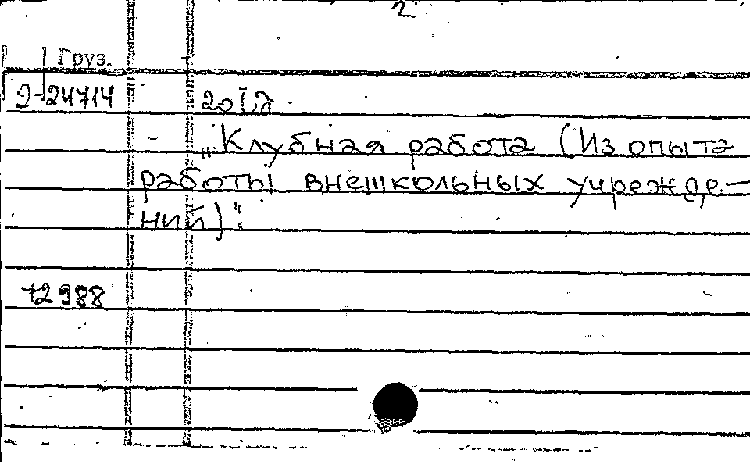 2
Груз.
2-24714
„Клубная работа (Из опыта
работы внешкольных учрежде-
ний)".
12988